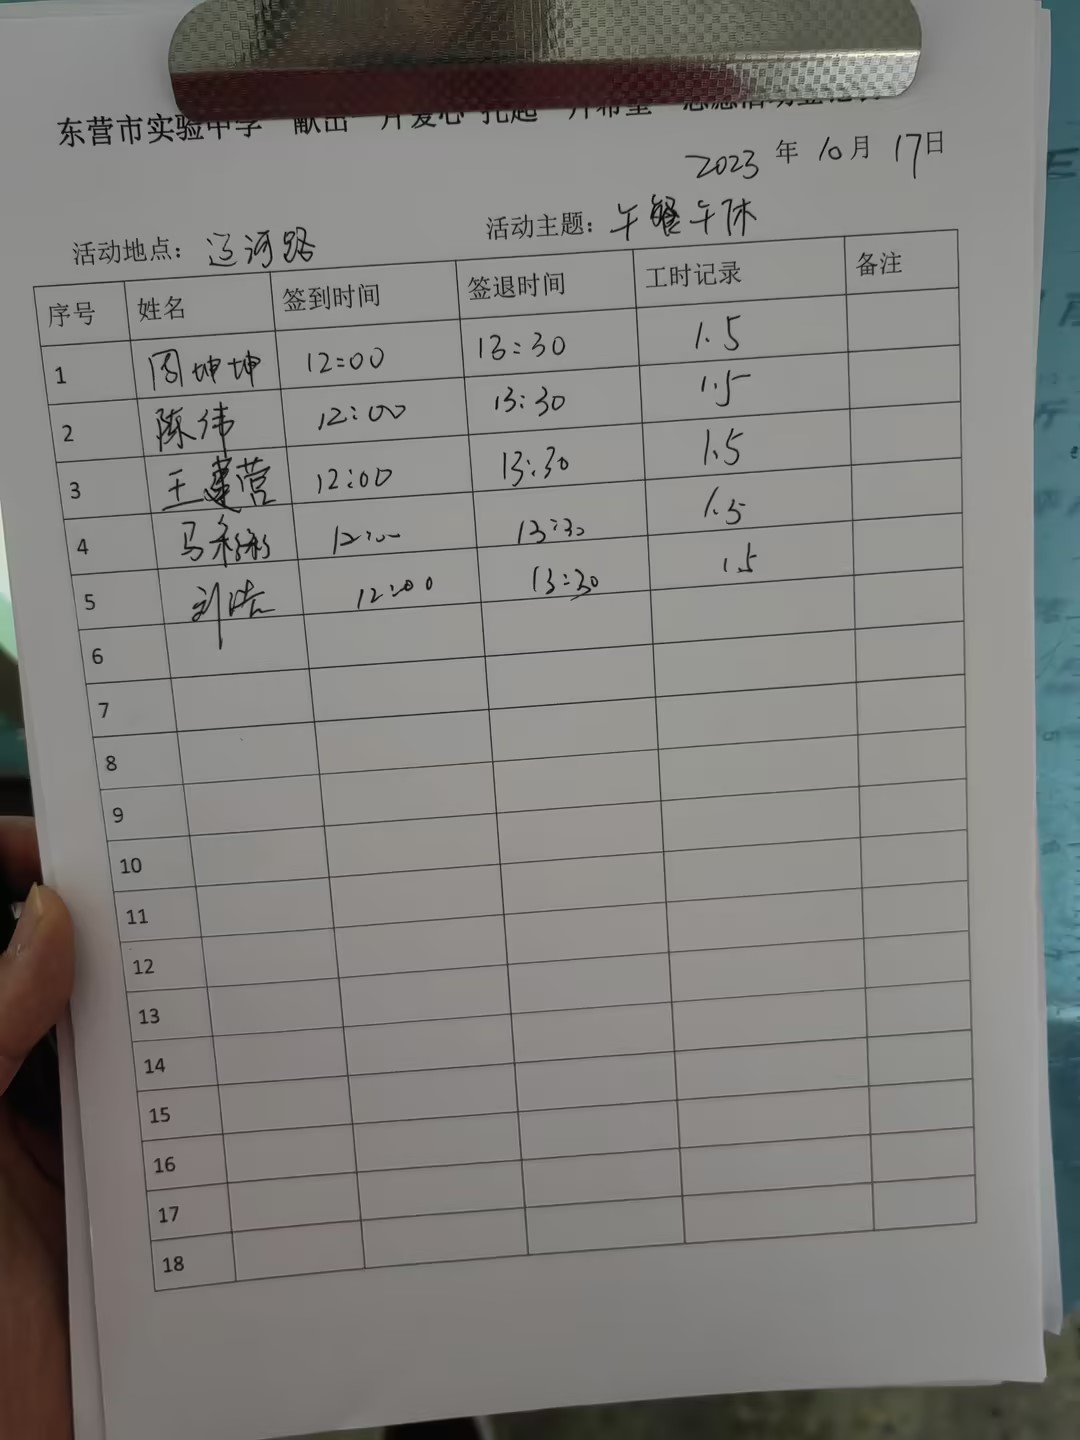 东营市实验中学“献出一片爱心 托起一片希望”志愿活动登记表
2023 年 10 月 17 日
活动地点：运河路 活动主题：午餐午休
序号 姓名 签到时间 签退时间 工时记录 备注
1 周坤坤 12:00 13:30 1.5
2 陈伟 12:00 13:30 1.5
3 王建营 12:00 13:30 1.5
4 马 12:00 13:30 1.5
5 刘浩 12:00 13:30 1.5
6
7
8
9
10
11
12
13
14
15
16
17
18